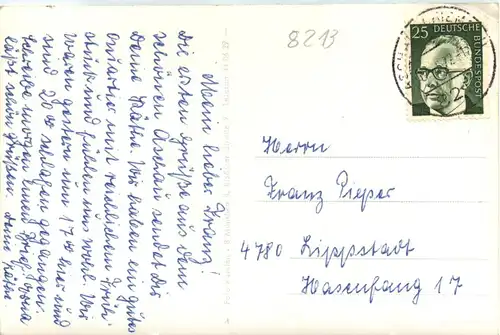 8213
25
DEUTSCHE
BUNDESPOST
Mein lieber Franz!
Die ersten Grüße aus dem
schönen Aschau sendet Dir
Deine Käthe. Wir haben ein gutes
Quartier mit reichlichem Früh-
stück und fühlen uns wohl. Wir
waren gestern um 17 Uhr hier und
sind 20 Uhr schlafen gegangen.
Schreibe morgen einen Brief.
läßt schön grüßen. Deine Käthe
Herrn
Franz Pieper
4780 Lippstadt
Hasenfang 17